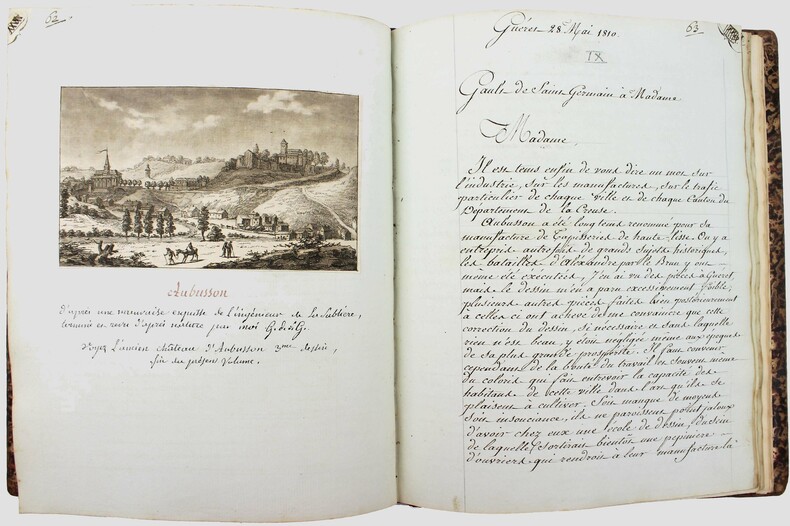 62
Aubusson
d'après une mauvaise esquisse de l'ingénieur de La Sablière,
terminé et revu d'après nature par moi G. d. S. G.
Voyez l'ancien château d'Aubusson 3me dessin,
fin du présent Volume.
Guéret 28 Mai 1810.
63
IX
Gault de Saint Germain à Madame
Madame
Il est tems enfin de vous dire un mot sur
l'industrie, sur les manufactures, sur le trafic
particulier de chaque ville et de chaque Canton du
Département de la Creuse.
Aubusson a été longtems renommé pour sa
manufacture de Tapisseries de haute-lisse. On y a
entrepris autrefois de grands sujets historiques,
les batailles d'Alexandre par le Brun y ont
même été exécutées, j'en ai vu des pièces à Guéret,
mais le dessin m'en a paru excessivement faible;
plusieurs autres pièces faites bien postérieurement
à celles ci ont achevé de me convaincre que cette
correction du dessin, si nécessaire et sans laquelle
rien n'est beau, y étoit négligée même aux époques
de sa plus grande prospérité. Il faut convenir
cependant de la bonté du travail et souvent même
du coloris qui fait entrevoir la capacité des
habitans de cette ville dans l'art qu'ils se
plaisent à cultiver. Soit manque de moyens
soit insouciance, ils ne paroissent point jaloux
d'avoir chez eux une école de dessin, du sein
de laquelle sortirait bientôt une pépinière
d'ouvriers qui rendroit à leur manufacture la